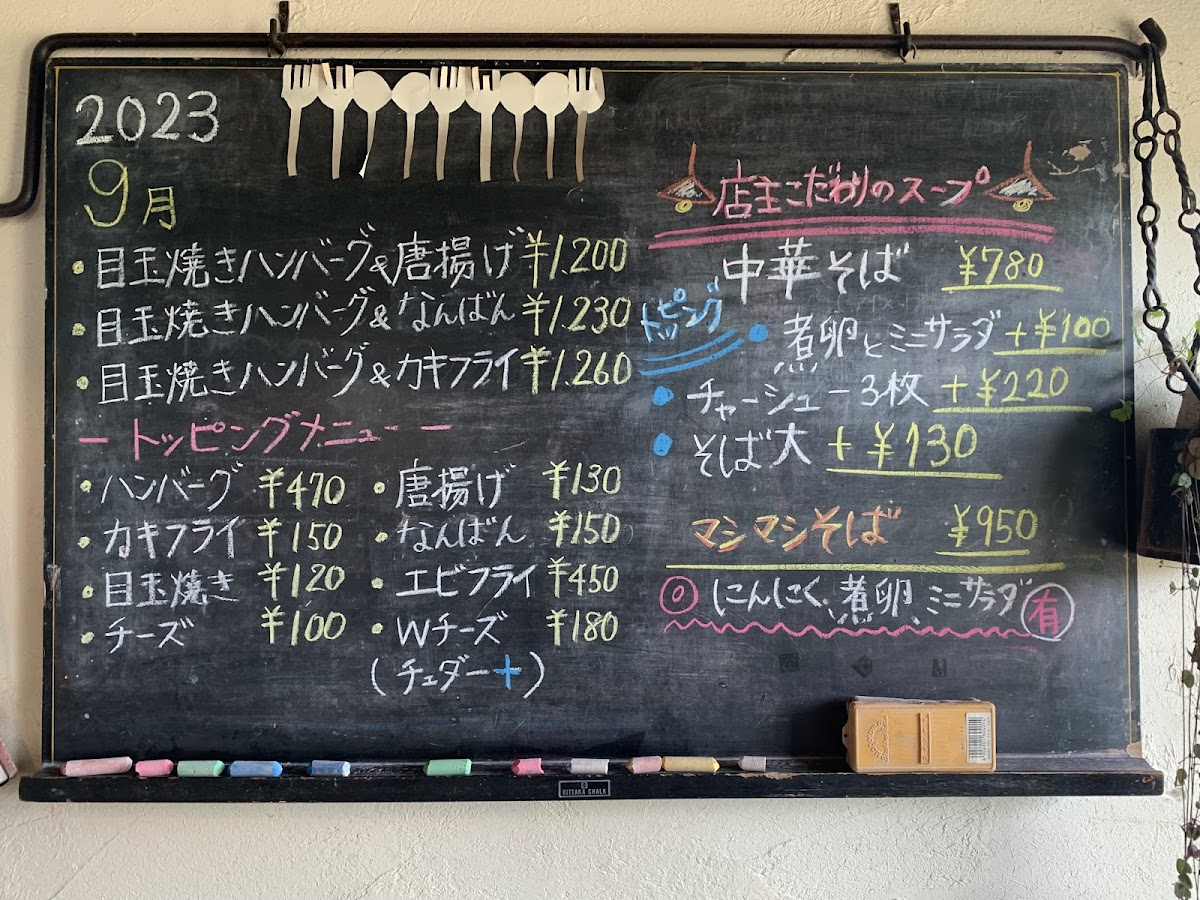 2023
9月
・目玉焼きハンバーグ&唐揚げ ¥1.200
・目玉焼きハンバーグ&なんばん ¥1.230
・目玉焼きハンバーグ&カキフライ ¥1.260
ートッピングメニューー
・ハンバーグ ¥470 ・唐揚げ ¥130
・カキフライ ¥150 ・なんばん ¥150
・目玉焼き ¥120 ・エビフライ ¥450
・チーズ ¥100 ・Wチーズ ¥180
(チェダー+)
店主こだわりのスープ
中華そば ¥780
トッピング
・煮卵とミニサラダ +¥100
・チャーシュー3枚 +¥220
・そば大 +¥130
マシマシそば ¥950
◎にんにく、煮卵、ミニサラダ 有
KITTAKA CHALK